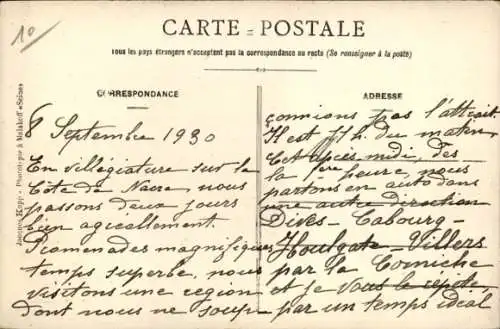 10
CARTE - POSTALE
Tous les pays étrangers n'acceptent pas la correspondance au recto (Se renseigner à la poste)
CORRESPONDANCE
8 Septembre 1930
En villégiature sur la
Côte de Nacre, nous
passons deux jours
bien agréellement.
Promenades magnifiques
temps superbe, nous
visitons une region
dont nous ne soup
ADRESSE
çonnions pas l'attrait.
Il est 11 h. du matin
Cet après-midi, dès
la 1ère heure, nous
partons en auto dans
une autre direction
Dives - Cabourg -
Houlgate - Villers
par la Corniche
et je vous le répète,
par un temps idéal
Malakoff (Seine)